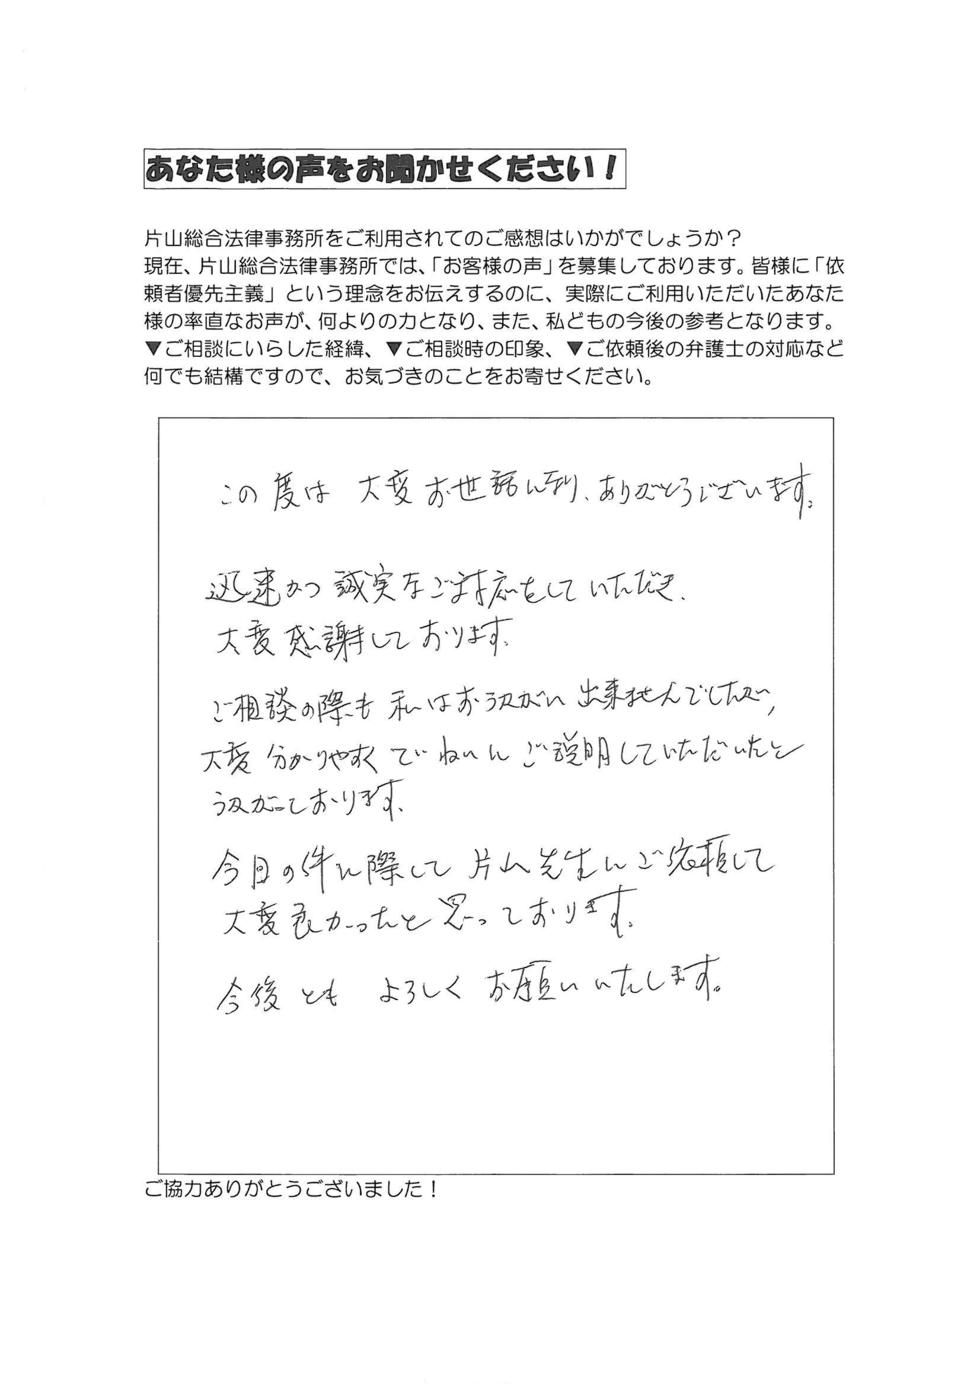 あなた様の声をお聞かせください！
片山総合法律事務所をご利用されてのご感想はいかがでしょうか？
現在、片山総合法律事務所では、「お客様の声」を募集しております。皆様に「依
頼者優先主義」という理念をお伝えするのに、実際にご利用いただいたあなた
様の率直なお声が、何よりの力となり、また、私どもの今後の参考となります。
▼ご相談にいらした経緯、▼ご相談時の印象、▼ご依頼後の弁護士の対応など
何でも結構ですので、お気づきのことをお寄せください。
この度は 大変お世話になり、ありがとうございます。
迅速かつ誠実なご対応をしていただき、
大変感謝しております。
ご相談の際も 私はおうかがい出来ませんでしたが、
大変分かりやすくていねいにご説明していただいたと
うかがっております。
今回の件に際して 片山先生にご依頼して
大変良かったと思っております。
今後とも よろしくお願いいたします。
ご協力ありがとうございました！